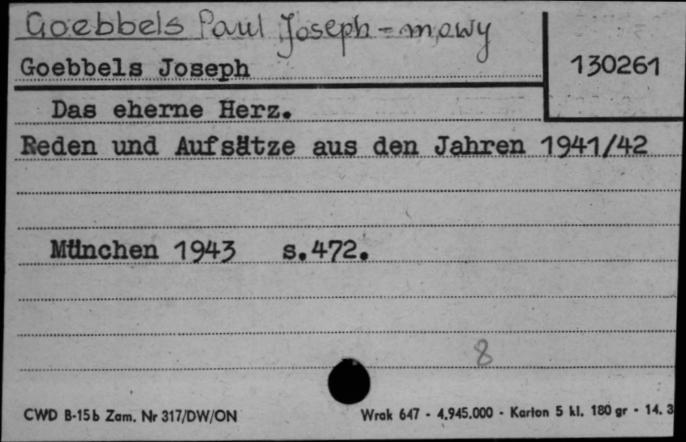 Goebbels Paul Joseph - mowy
Goebbels Joseph
130261
Das eherne Herz.
Reden und Aufsätze aus den Jahren 1941/42
München 1943 s.472.
8
CWD B-15b Zam. Nr 317/DW/ON
Wrak 647 - 4.945.000 - Karton 5 kl. 180 gr - 14. 3